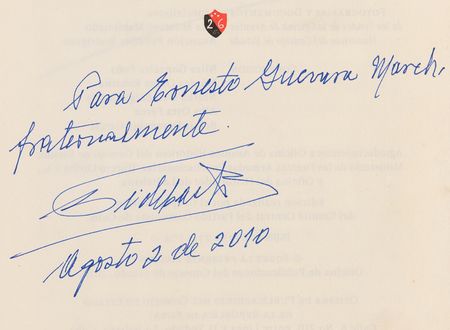 26
Para Ernesto Guevara March,
fraternalmente.
Fidel Castro
Agosto 2 de 2010